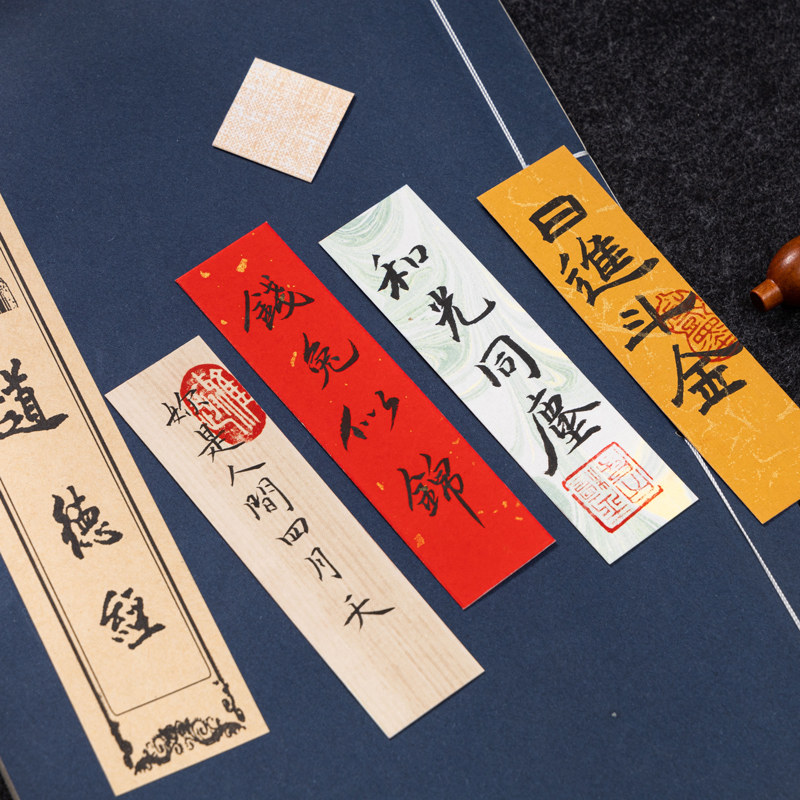 道德經
妳是人間四月天
錢兔似錦
和光同塵
日進斗金